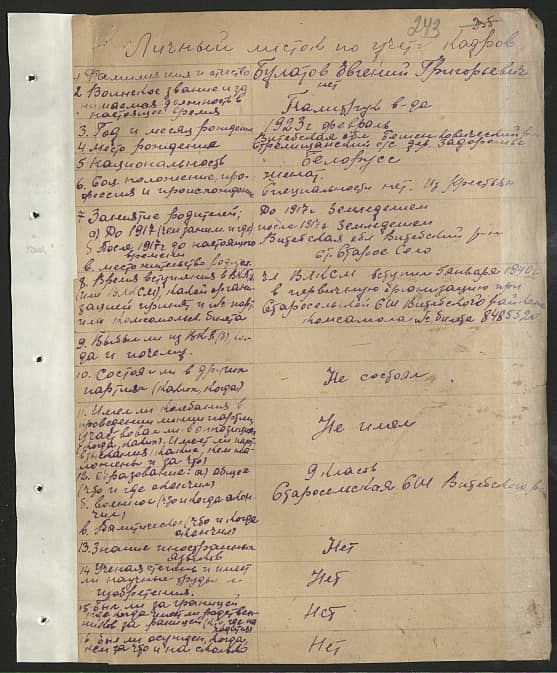 243
Личный листок по учету Кадров
1. Фамилия имя и отчество Булатов Евгений Григорьевич
2. Воинское звание и за нет
нимаемая должность в Политрук в-да
настоящее время
3. Год и месяц рождения 1923г. февраль
4. Место рождения Витебская обл Бешенковичский р-н
Стрелищанский с/с дер. Задорожье
5. Национальность Белорусс
6. Соц. положение, про- женат.
фессия и происхождение Специальности нет. Из крестьян
7. Занятие родителей; До 1917г Земледелием
а) До 1917г (чем занимал. и где) после 1917г Земледелием
б. После 1917г до настоящего Витебская обл Витебский р-н
времени ст. Старое Село
в. местожительство родител.
8. Время вступления в ВКП(б) чл ВЛКСМ вступил января 1940г
или ВЛКСМ). Какой органи- в первичную организацию при
зацией принят и № парт Старосельской СШ Витебского райкома
или комсомольск билета Комсомола № билета
9. Выбыл ли из ВКП(б), ко- —
гда и почему.
10. Состоял ли в других Не состоял
партиях (Каких, Когда)
11. Имел ли колебания в
проведении линии партии,
Участвовал ли в оппозиции Не имел
(когда, каких). Имеет ли парт
взыскания (какие, кем на-
ложены и за что)
12. Образование: а) общее 9 класов
(что и где окончил) Старосельская СШ Витебского р-
б. военное (что и когда окон-
чил)
в. Политическое (что и когда
окончил)
13. Знание иностранных Нет
языков
14. Ученая степень и имеет Нет
ли научные труды и
изобретения.
15. был ли за границей, Нет
где когда имеет ли родствен-
ников за границей
16. был ли осужден, когда, Нет
кем за что и на сколько